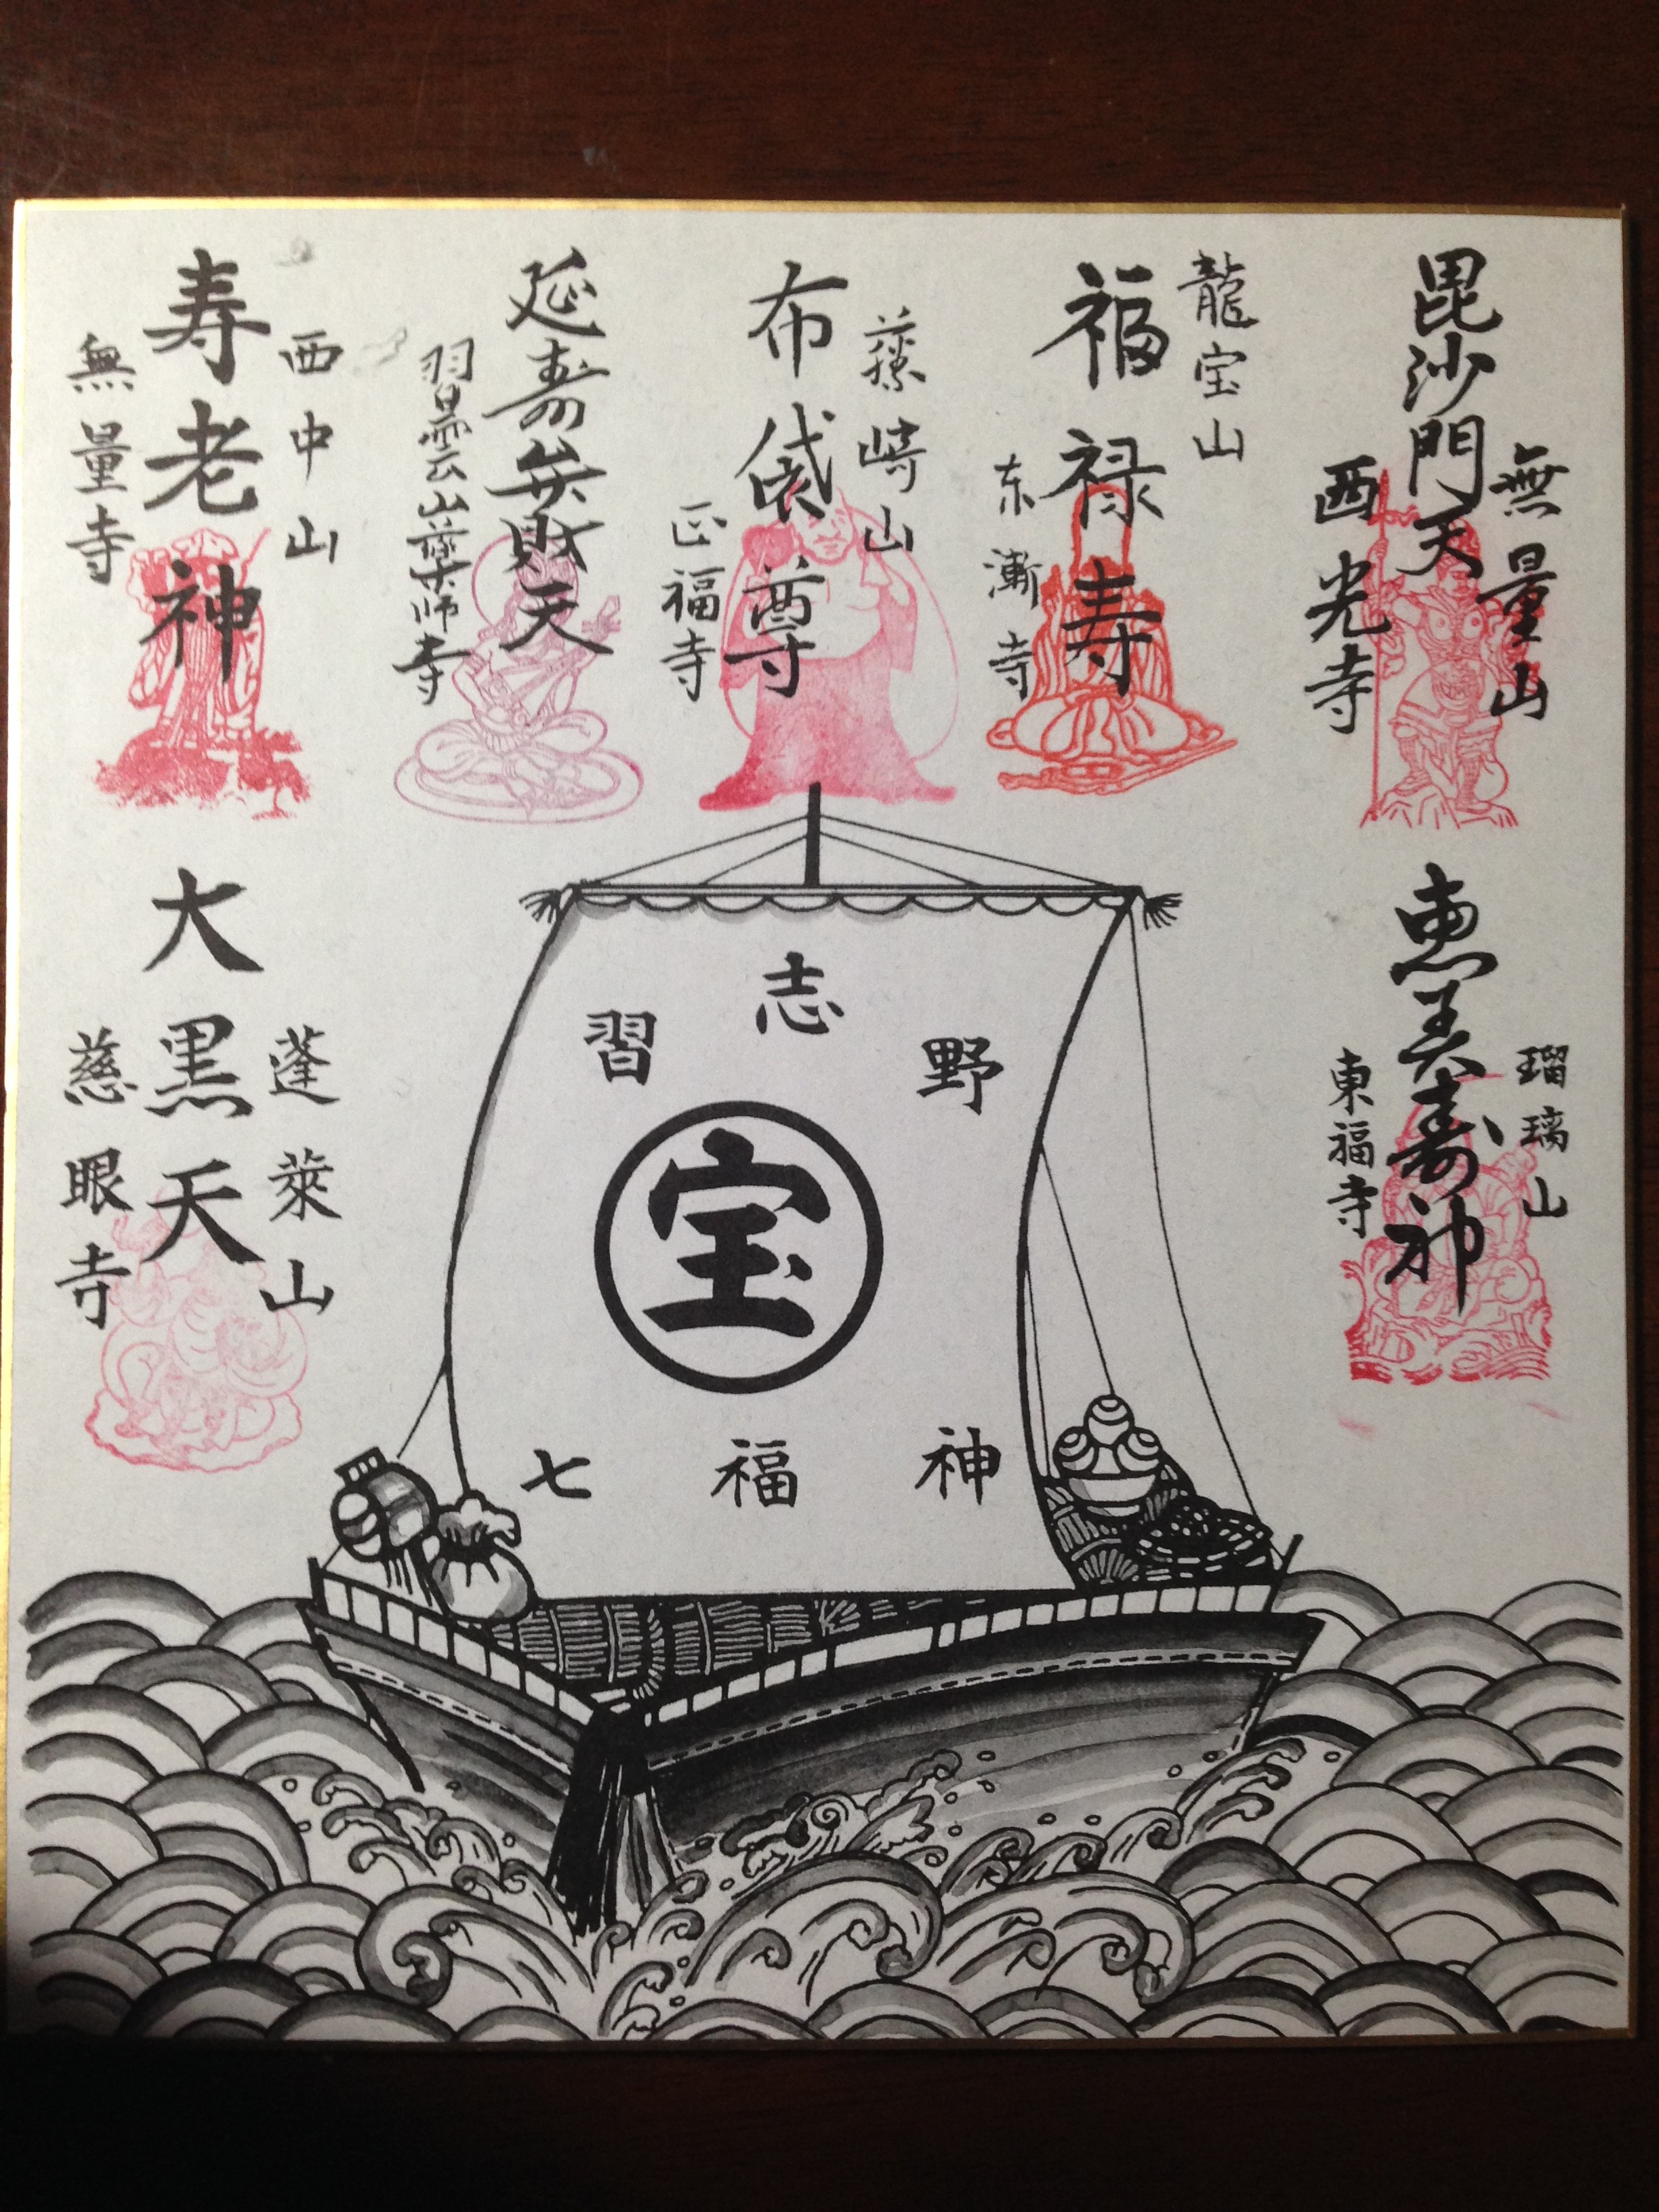 無量山
毘沙門天
西光寺
龍宝山
福禄寿
东漸寺
藤崎山
布袋尊
正福寺
延寿弁財天
習雲山薬師寺
西中山
寿老神
無量寺
瑠璃山
恵美寿神
東福寺
蓬莱山
大黒天
慈眼寺
習志野
宝
七福神